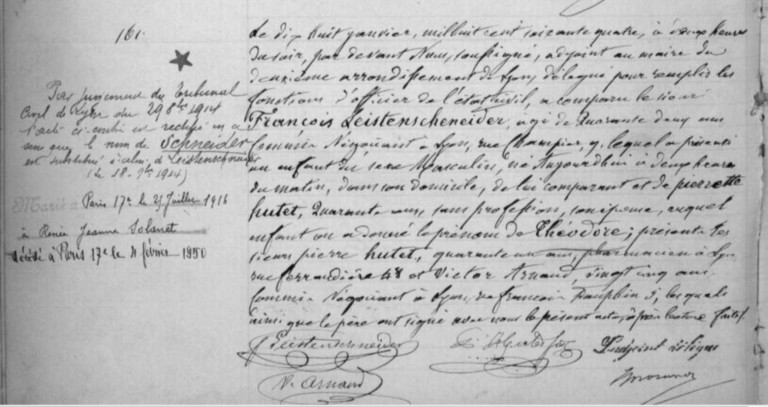 161.
Par jugement du Tribunal
Civil de Lyon du 29 8bre 1914
l'acte ci-contre est rectifié en ce
sens que le nom de Schneider
est substitué à celui de Leistenschneider
(le 18 9bre 1914)
Marié à Paris 17e le 27 Juillet 1916
à Renée Jeanne Solanet
décédé à Paris 17e le 4 février 1950
Le dix huit janvier, mil huit cent soixante quatre, à deux heures
du soir, par devant Nous, soussigné, adjoint au maire du
deuxième arrondissement de Lyon, délégué pour remplir les
fonctions d'officier de l'état civil, a comparu le sieur
François Leistenscheneider, âgé de Quarante deux ans
Commis Négociant à Lyon, rue Champier, 9, lequel a présenté
un enfant du sexe Masculin, né Aujourdhui à deux heures
du matin, dans son domicile, de lui comparant et de pierrette
hutet, Quarante ans, sans profession, son épouse, auquel
enfant on a donné le prénom de Théodore; présents les
sieurs pierre hutet, quarante un ans, pharmacien à Lyon
rue ferrandière 48 et Victor Arnaud, vingt cinq ans
Commis Négociant à Lyon, rue françois Dauphin 5, lesquels
ainsi que le père ont signé avec nous le présent acte, après lecture faite.
Leistenschneider
L'adjoint délégué
V. Arnaud